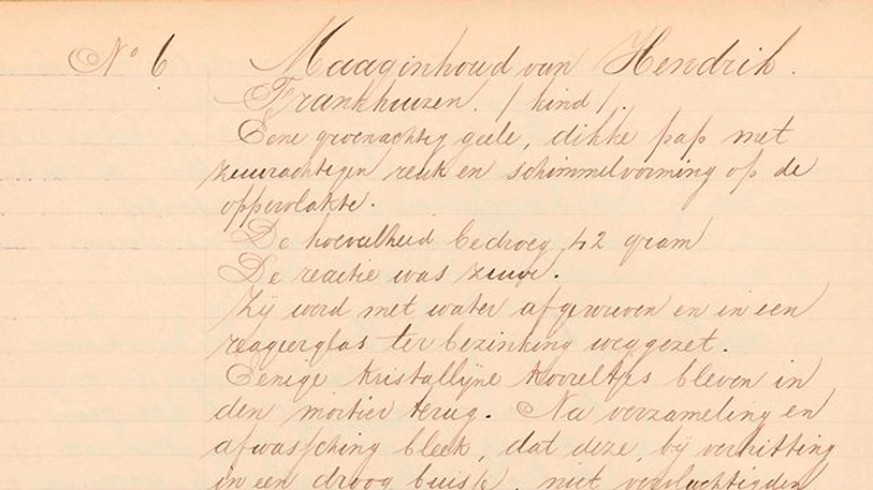 No 6 Maaginhoud van Hendrik.
Frankhuizen. / kind /.
Eene groenachtig geele, dikke pap met
zuurachtigen reuk en schimmelvorming op de
oppervlakte.
De hoeveelheid bedroeg 42 gram
De reactie was zuur.
Zij werd met water afgewreven en in een
reageerglas ter bezinking weggezet.
Eenige kristallijne korreltjes bleven in
den mortier terug. Na verzameling en
afwassching bleek, dat deze, bij verhitting
in een droog buisje, niet vervluchtigden